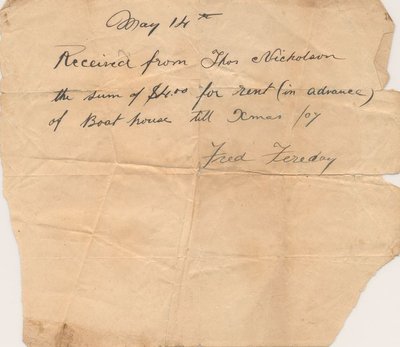 May 14th
Received from Thos Nicholson
the sum of $4.00 for rent (in advance)
of Boat house till Xmas /07
Fred Fereday